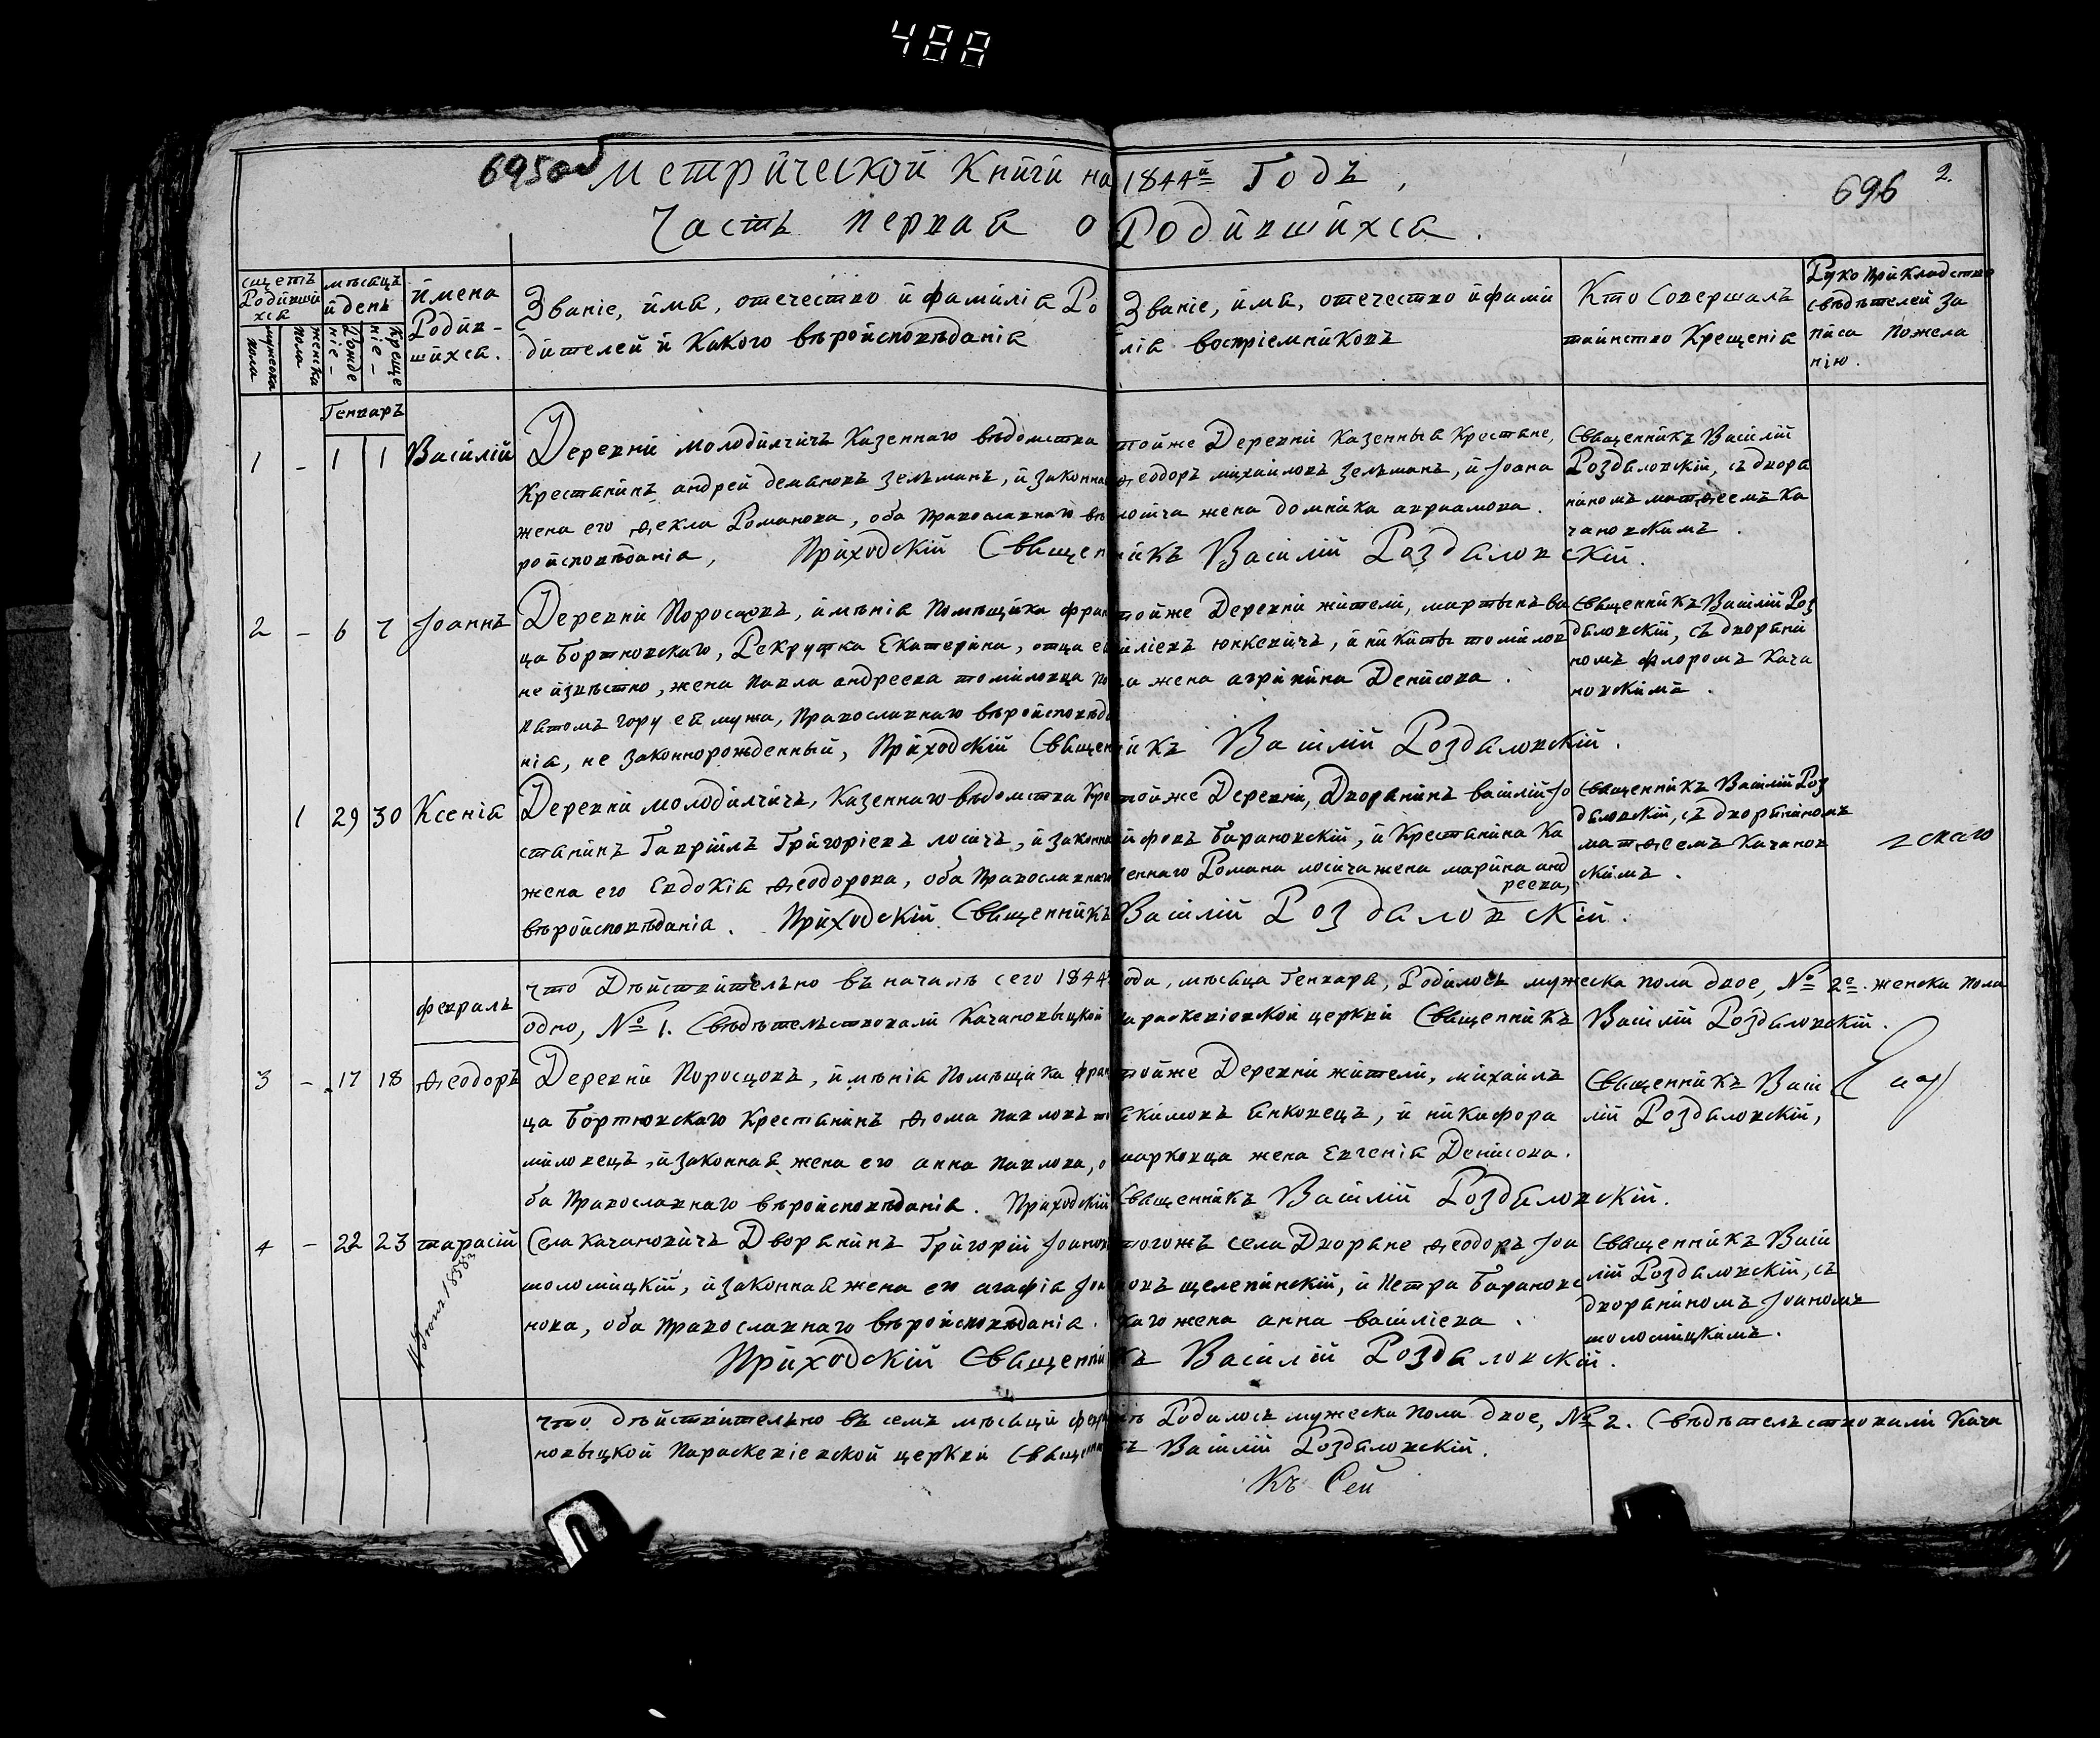 488
695об Метрической Книги на 1844й Годъ,
696 2.
Часть первая о Родившихся.
сщетъ Родившихся
мужеска пола
женска пола
мѣсяцъ и день
Рожденіе -
Крещеніе -
имена
Родив-
шихся.
Званіе, имя, отечество и фамилія Ро
дителей и Какого вѣроисповѣданія
Званіе, имя, отечество и фами
лія воспріемниковъ
Кто Совершалъ
таинство Крещенія
Рукоприкладство
свѣдѣтелей за
писа пожела
нію.
Генваръ
1 - 1 1 Василій
Деревни Молодилчичъ Казеннаго вѣдомства
Крестянинъ андрей демяновъ зелманъ, и законная
жена его Ѳекла Романова, оба Православнаго вѣ
роисповѣданія, Приходскій Священ
тойже Деревни Казенныя Крестяне,
Ѳеодоръ михайловъ зелманъ, и Іоана
лойча жена домника авраамова.
никъ Василій Роздяловскій.
Священникъ Василій
Роздяловскій, съ дворя
ниномъ матѳеемъ Ка
чановскимъ.
2 - 6 7 Іоаннъ
Деревни Поросцовъ, имѣнія Помѣщика фран
ца Бортновскаго, Рекрутка Екатерина, отца ея
не извѣстно, жена Павла андреева томиловца по
пятомъ году ея мужа, Православнаго вѣроисповѣда
нія, не законнорожденный, Приходскій Священ
тойже Деревни жители, мартынъ ва
силіевъ юнкевичъ, и никиты томилов
ца жена агрипина Денисова.
никъ Василій Роздяловскій.
Священникъ Василій Роз
дяловскій, съ дворяни
номъ флоромъ Кача
новскимъ.
1 29 30 Ксенія
Деревни молодилчичъ, Казеннаго вѣдомства Кре
стянинъ Гавріилъ Григоріевъ лосичъ, и законная
жена его Евдокія Ѳеодорова, оба Православнаго
вѣроисповѣданія. Приходскій Священникъ
тойже Деревни, Дворянинъ василій Іо
сифовъ Барановскій, и Крестянина Ка
зеннаго Романа лосича жена марина анд
реева,
Василій Роздяловскій.
Священникъ Василій Роз
дяловскій, съ дворяниномъ
матѳеемъ Качанов
скимъ.
скаго
февраль
что Дѣйствительно въ началѣ сего 1844 года, мѣсяца Генваря, Родилось мужеска пола двое, № 2е. женска пола
одно, № 1. Свѣдѣтельствовали Качановыцкой Параскевіовской церкви Священникъ Василій Роздяловскій.
3 - 17 18 Ѳеодоръ
Деревни Поросцовъ, имѣнія Помѣщика фран
ца Бортновскаго Крестянинъ Ѳома Павловъ то
миловецъ, и законная жена его анна Павлова, о
ба Православнаго вѣроисповѣданія. Приходскій
тойже Деревни жители, михаилъ
якимовъ янковецъ, и никифора
марковца жена Евгенія Денисова.
Священникъ Василій Роздяловскій.
Священникъ Васи
лій Роздяловскій,
4 - 22 23 тарасій
Села Качановичъ Дворянинъ Григорій Іоанов
толомицкій, и законная жена его агафія Іоа
нова, оба Православнаго вѣроисповѣданія.
Приходскій Священни
тогожъ села Дворяне Ѳеодоръ Іоа
новъ щелепинскій, и Петра Барановс
каго жена анна василіева.
къ Василій Роздяловскій.
Священникъ Васи
лій Роздяловскій, съ
дворяниномъ Іоаномъ
толомицкимъ.
что дѣйствительно въ семъ мѣсяцѣ февралѣ Родилось мужеска пола двое, № 2. Свѣдѣтельствовали Кача
новыцкой Параскевіевской церкви Священникъ Василій Роздяловскій.
Къ Сей